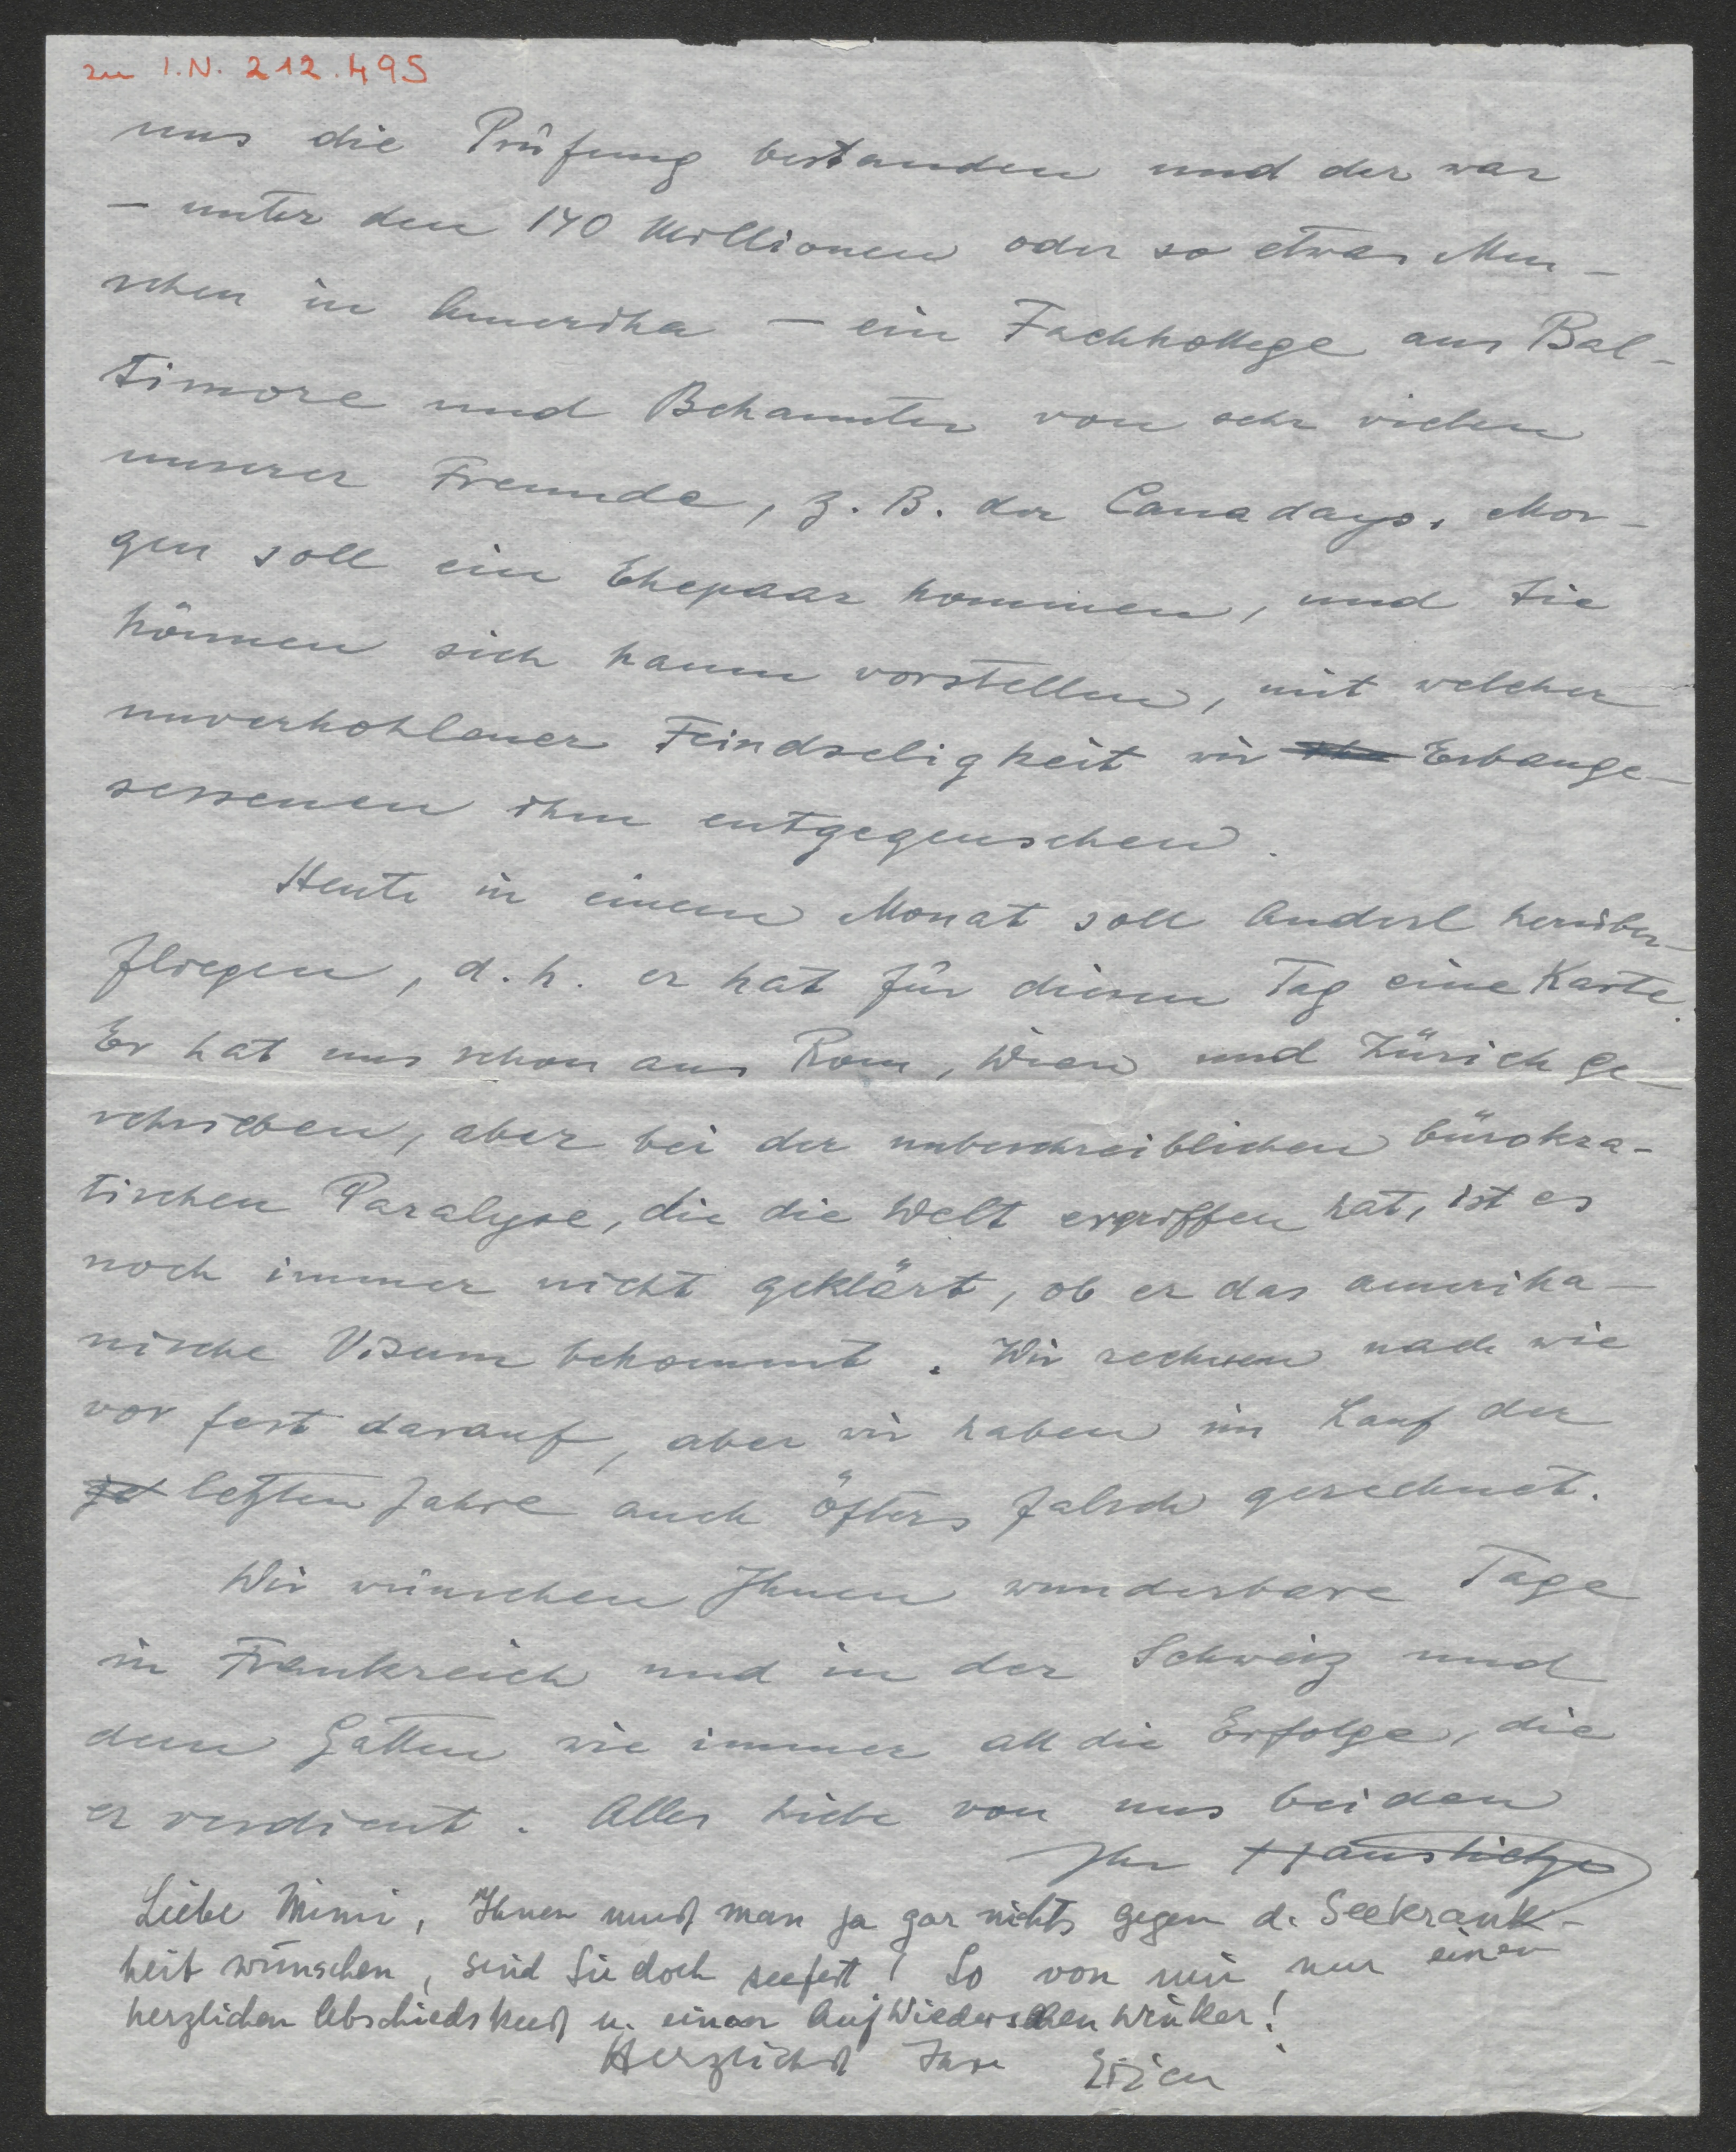 zu I.N. 212.495
uns die Prüfung bestanden und der war
– unter den 140 Millionen oder so etwas Men-
schen in Amerika – ein Fachkollege aus Bal-
timore und Bekannter von sehr vielen
unserer Freunde, z. B. der Canadays. Mor-
gen soll ein Ehepaar kommen, und Sie
können sich kaum vorstellen, mit welcher
unverhohlener Feindseligkeit wir Erbange-
sessenen ihm entgegensehen.
Heute in einem Monat soll Anderl herüber-
fliegen, d. h. er hat für diesen Tag eine Karte.
Er hat uns schon aus Rom, Wien und Zürich ge-
schrieben, aber bei der unbeschreiblichen bürokra-
tischen Paralyse, die die Welt ergriffen hat, ist es
noch immer nicht geklärt, ob er das amerika-
nische Visum bekommt. Wir rechnen nach wie
vor fest darauf, aber wir haben im Lauf der
letzten Jahre auch öfters falsch gerechnet.
Wir wünschen Ihnen wunderbare Tage
in Frankreich und in der Schweiz und
dem Gatten wie immer all die Erfolge, die
er verdient. Alles Liebe von uns beiden
Ihr Hans Tietze
Liebe Mimi, Ihnen muß man ja gar nichts gegen d. Seekrank-
heit wünschen, sind Sie doch seefest! So von mir nur einen
herzlichen Abschiedskuß u. einen Auf Wiedersehen Winker!
Herzlichst Ihre Erica